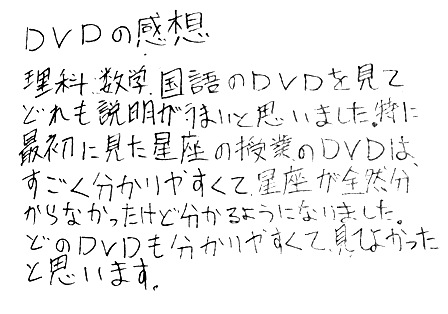 DVDの感想
理科、数学、国語のDVDを見て
どれも説明がうまいと思いました。特に
最初に見た星座の授業のDVDは、
すごく分かりやすくて、星座が全然分
からなかったけど分かるようになりました。
どのDVDも分かりやすくて、見てよかった
と思います。